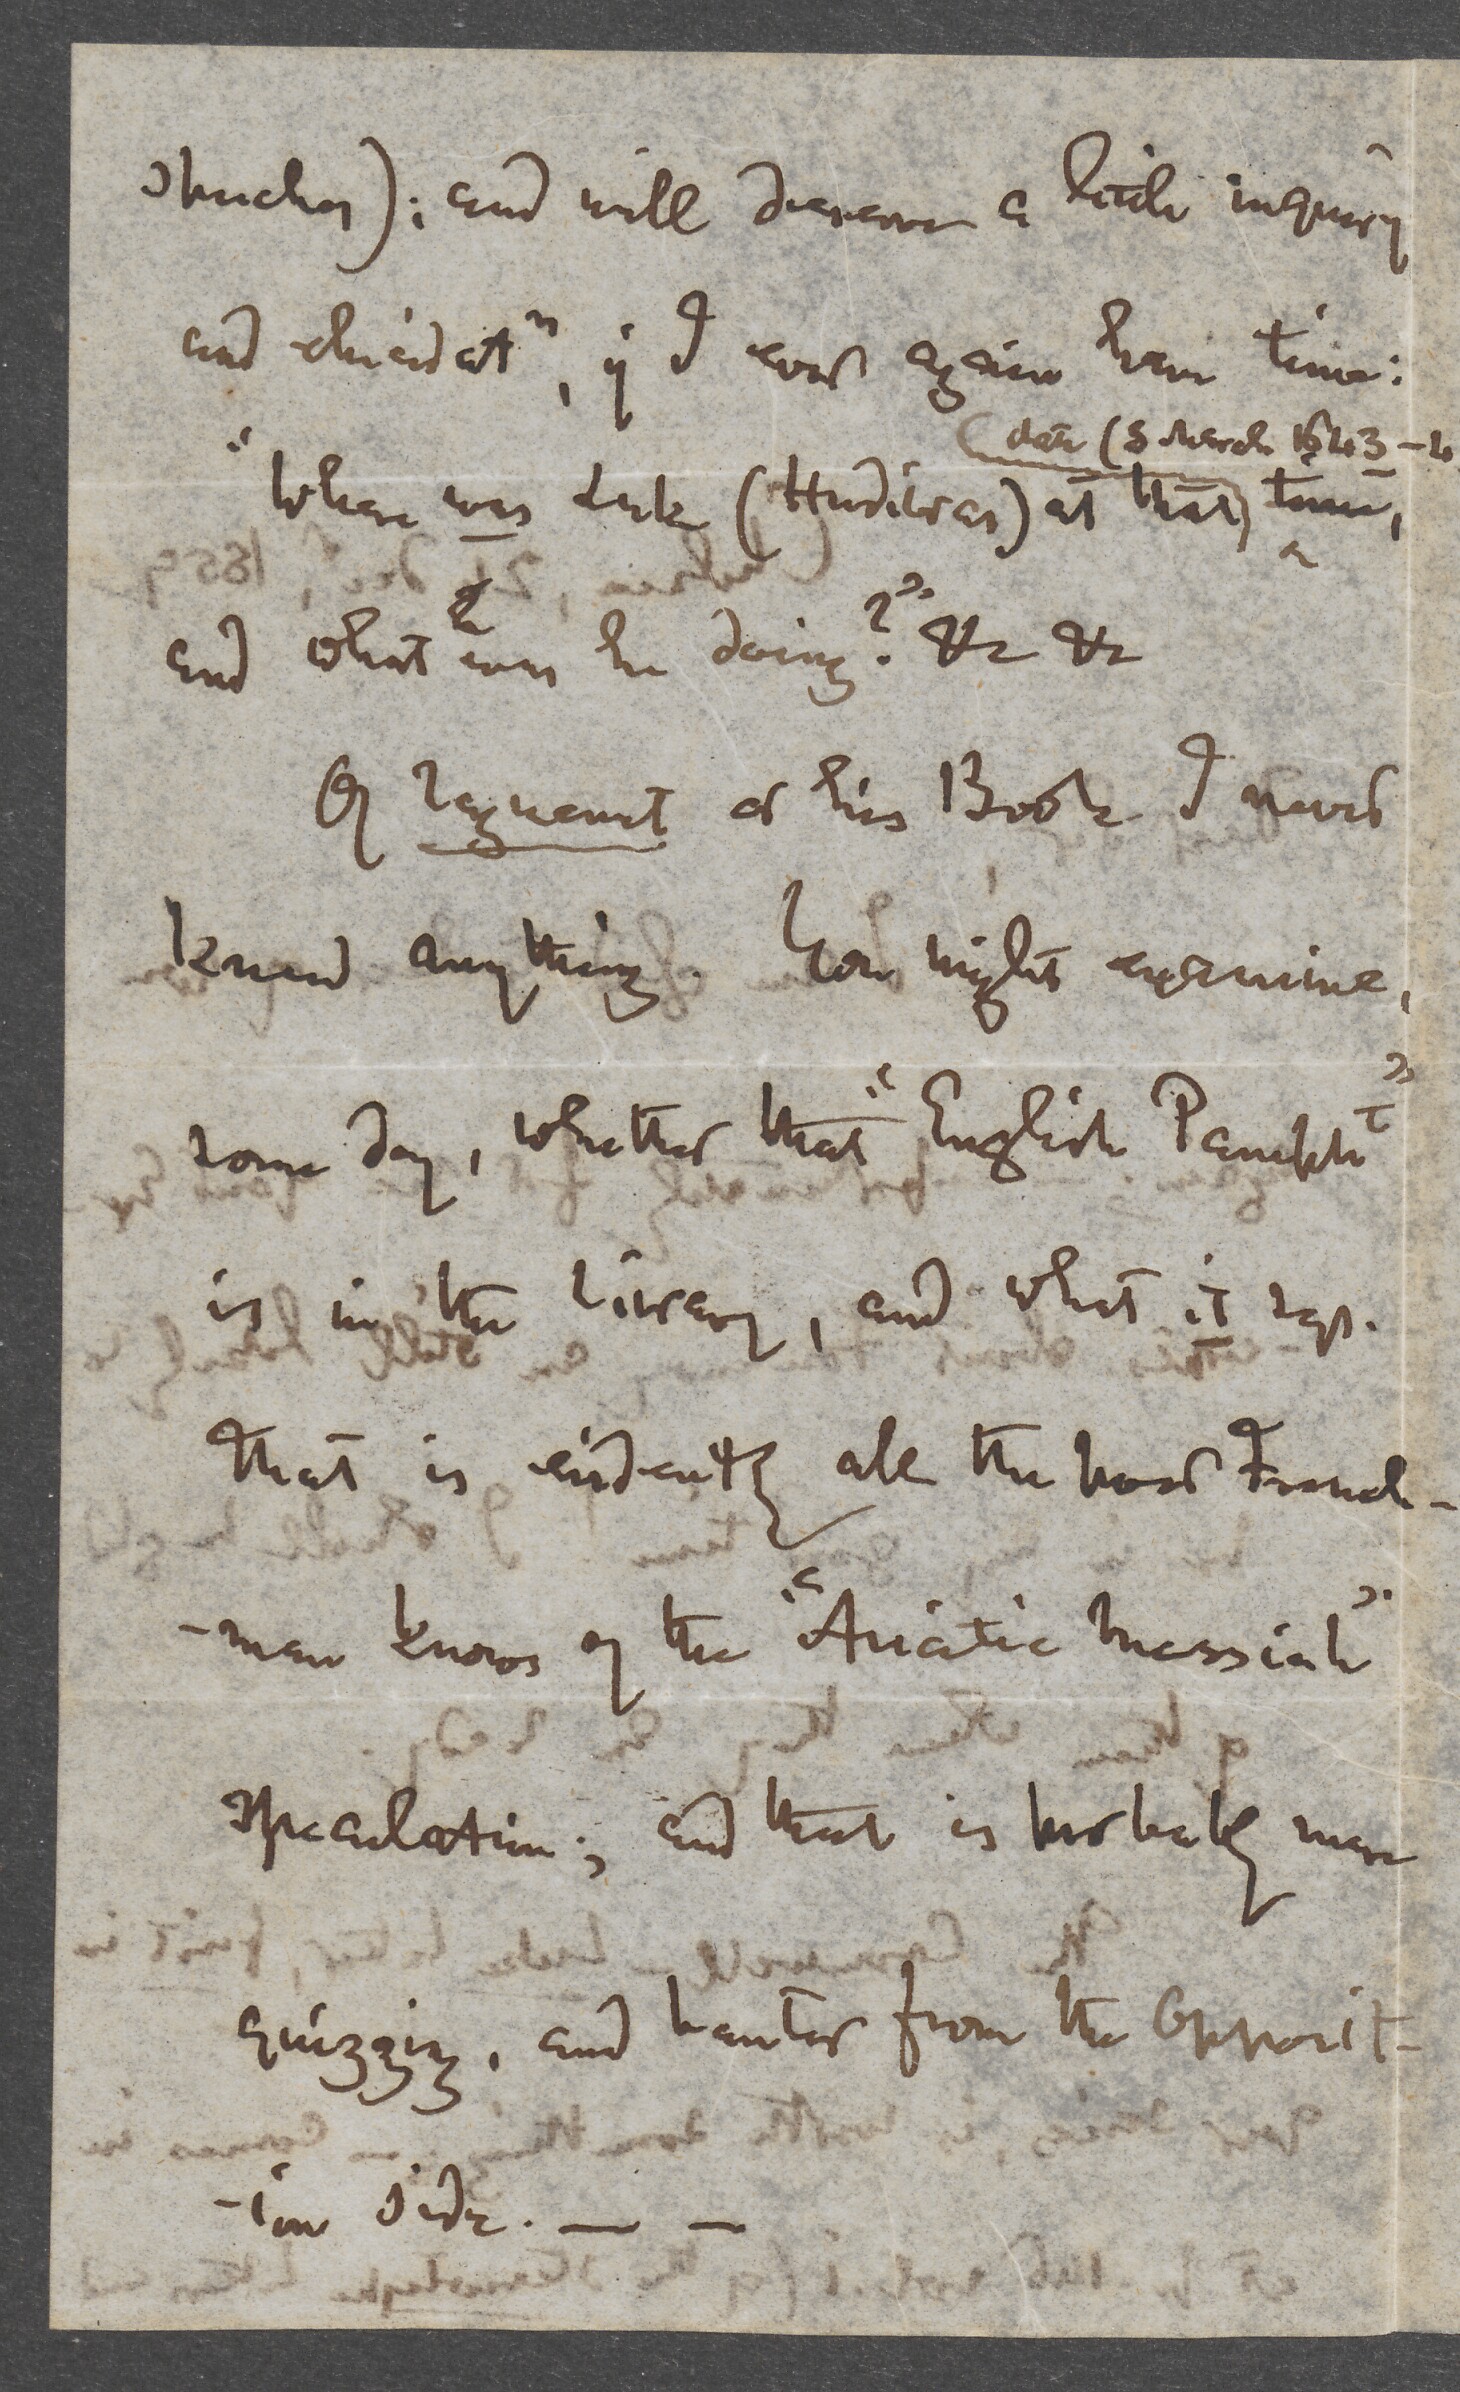 and will deserve a little inquiry
and elucidatn, if I ever again have time:
date (8 March 1643-4
"Where was Luke (Hudibras) at that time,
and what was he doing?" &c &c
Of Raguenet or his Book I never
knew anything. You might examine,
some day, whether that "English Pamphlt"
is in the Library, and what it says.
That is evidently all the poor French-
-man knows of the "Asiatic Messiah"
speculation; and that is probably mere
quizzing, and banter from the Opposit-
-ion side. — —